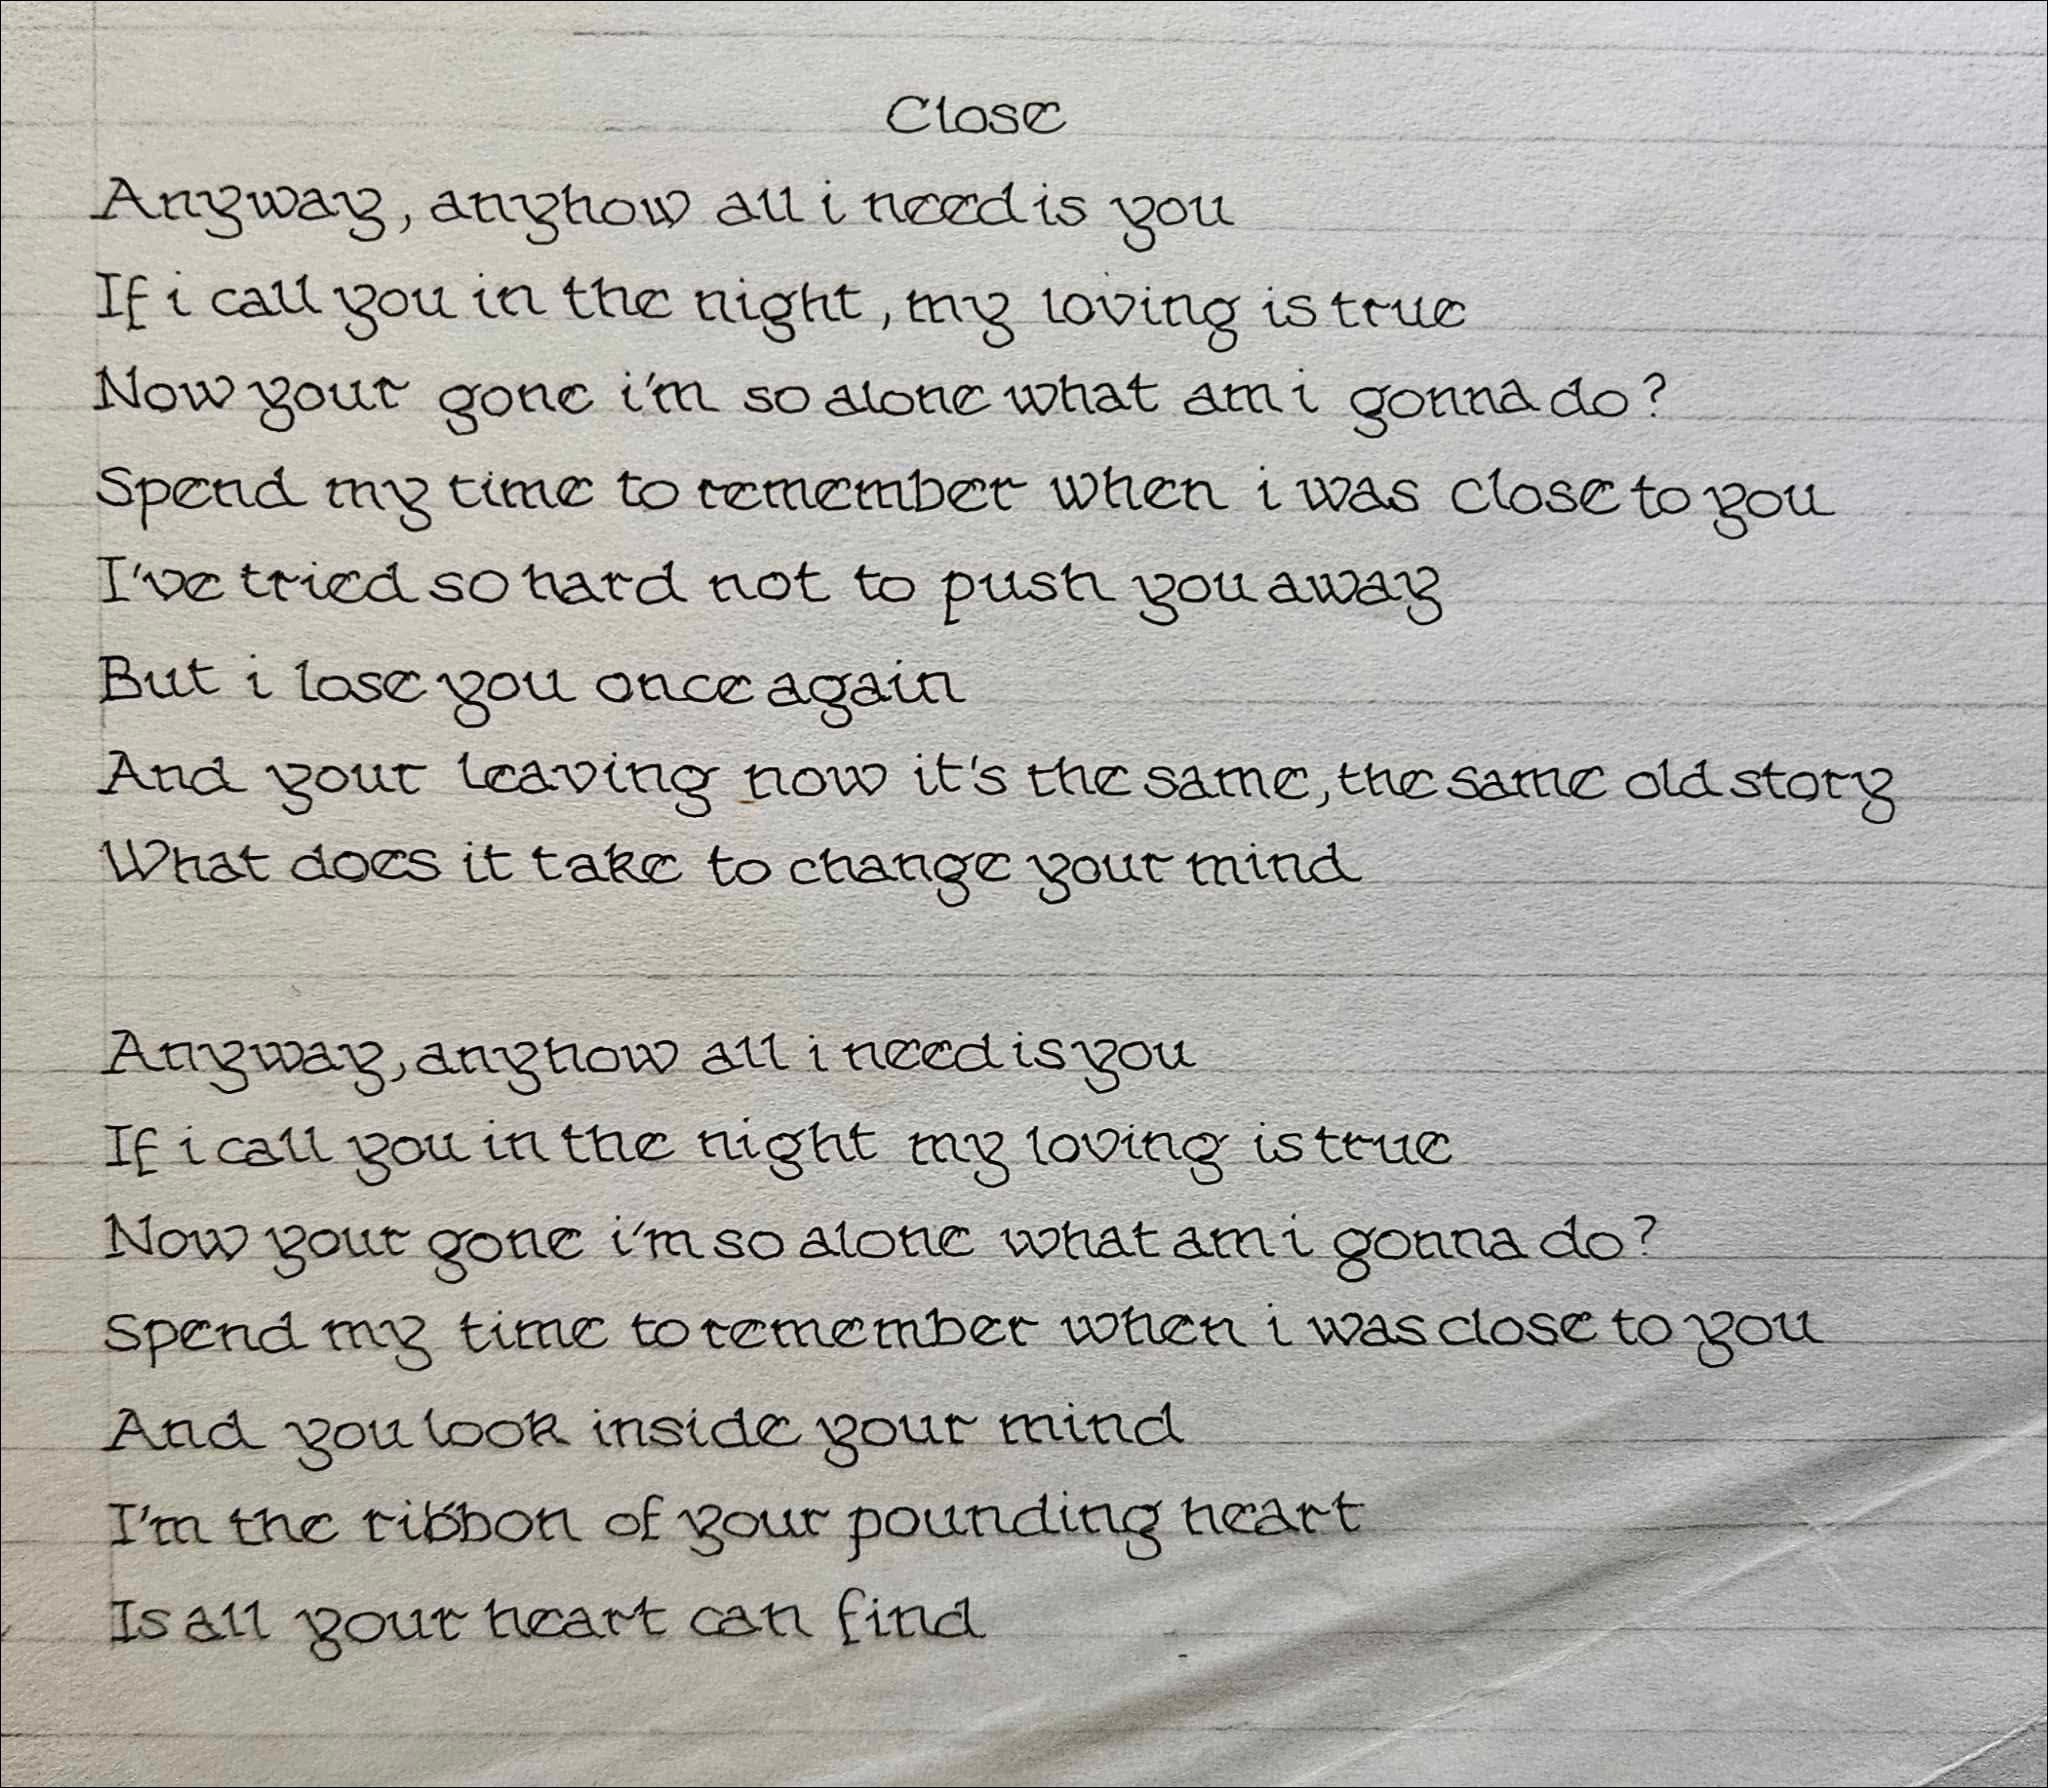 Close
Anyway, anyhow all i need is you
If i call you in the night, my loving is true
Now your gone i'm so alone what am i gonna do?
Spend my time to remember when i was close to you
I've tried so hard not to push you away
But i lose you once again
And your leaving now it's the same, the same old story
What does it take to change your mind
Anyway, anyhow all i need is you
If i call you in the night my loving is true
Now your gone i'm so alone what am i gonna do?
Spend my time to remember when i was close to you
And you look inside your mind
I'm the ribbon of your pounding heart
Is all your heart can find